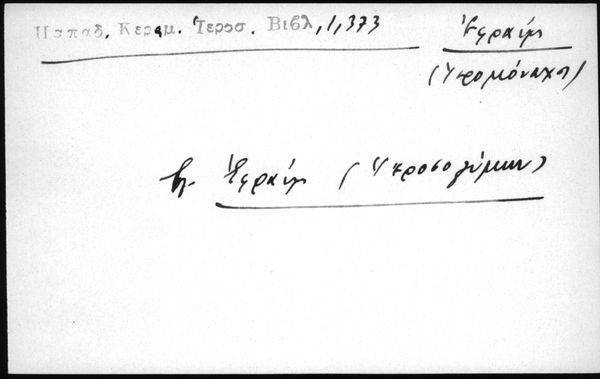 Παπαδ. Κεραμ. Ἱεροσ. Βιβλ, 1, 373
Ἐφραίμ
(Ἱερομόναχος)
βλ. Ἐφραίμ (Ἱεροσολύμων)